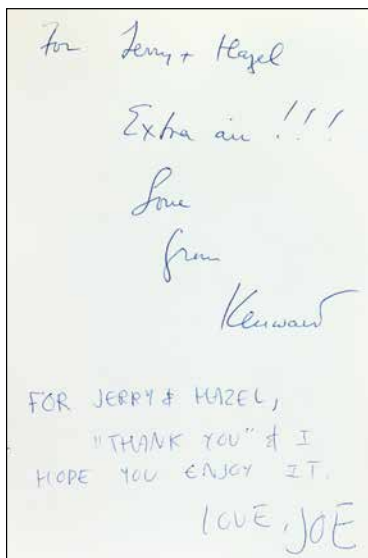 For Jerry + Hazel
Extra air !!!
Love
from
Kenward
FOR JERRY & HAZEL,
"THANK YOU" & I
HOPE YOU ENJOY IT.
LOVE, JOE